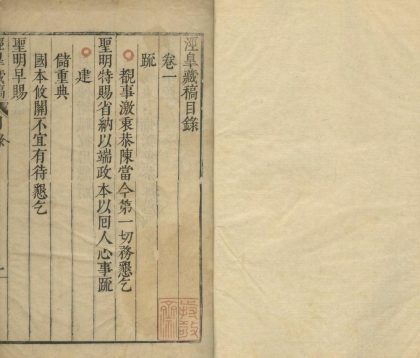 涇皐藏稿目錄
卷一
疏
覩事激衷恭陳當今第一切務懇乞
聖明特賜省納以端政本以回人心事疏
建
儲重典
國本攸關不宜有待懇乞
聖明早賜
涇皐藏稿